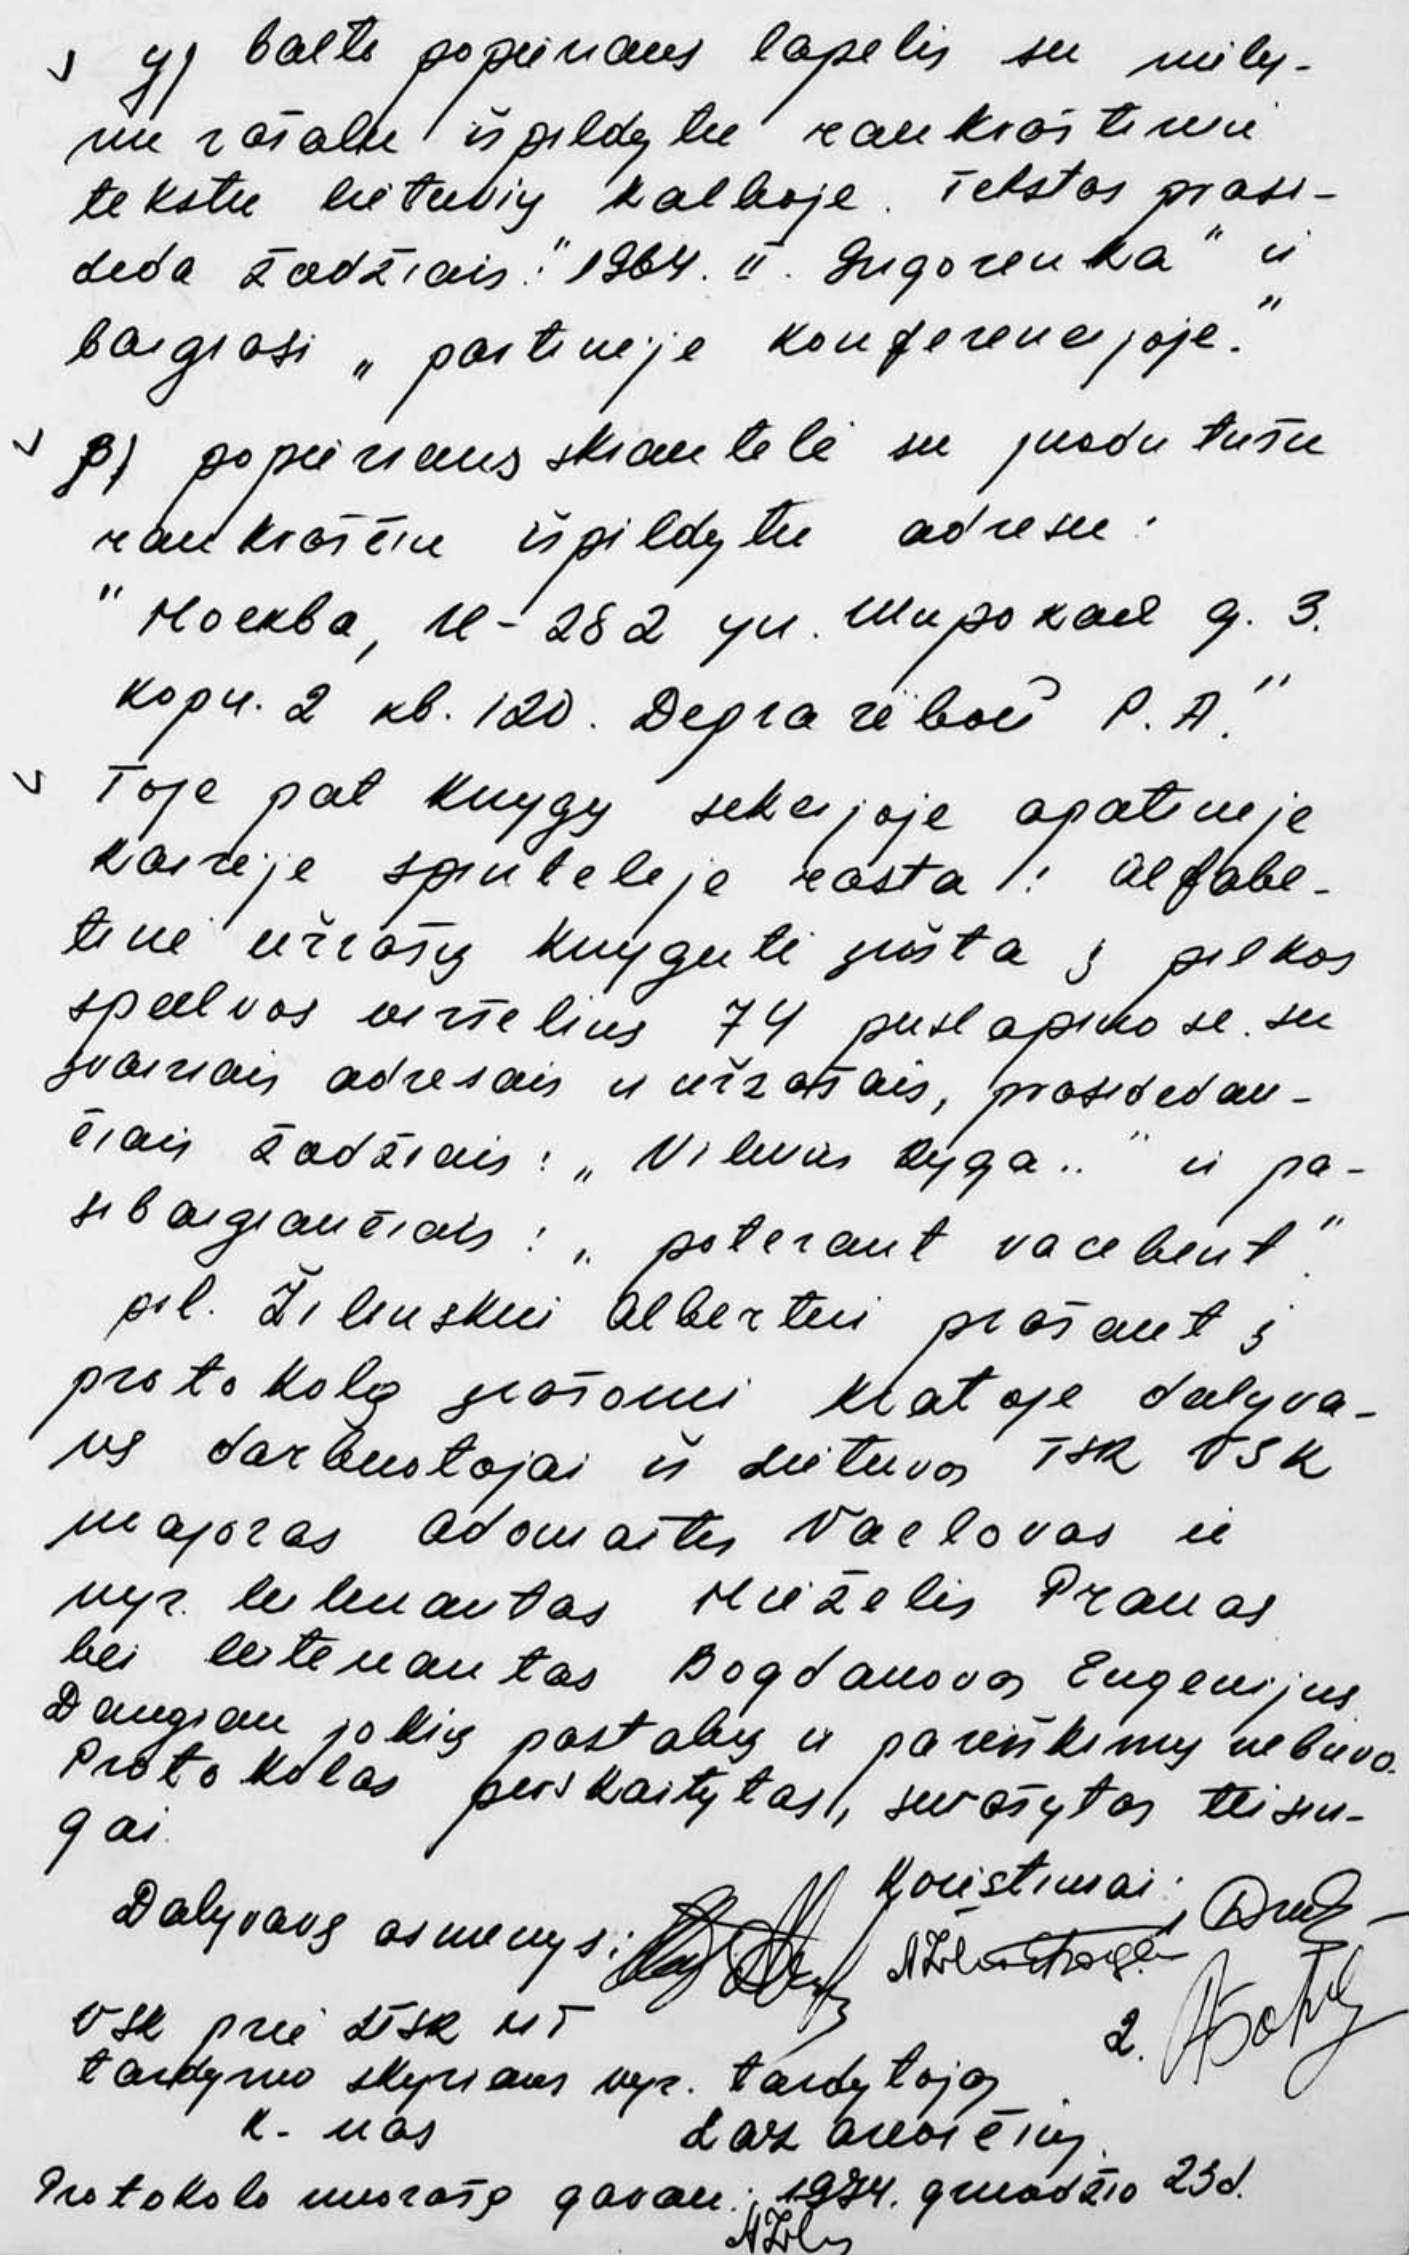 у) balto popieriaus lapelis su mėly-
nu rašalu išpildytu rankraštiniu
tekstu lietuvių kalboje. Tekstas prasi-
deda žodžiais: "1964. II. Grigorenka" ir
baigiasi „partinėje konferencijoje."
popieriaus skiautelė su juodu tušu
rankraščiu išpildytu adresu:
"Москва, М-282 ул. Широкая д. 3.
корп. 2 кв. 120. Р. А."
Toje pat knygų sekcijoje apatinėje
kairėje spintelėje rasta: alfabe-
tinė užrašų knygutė įrišta į pilkos
spalvos viršelius 74 puslapiuose su
įvairiais adresais ir užrašais, prasidedan-
čiais žodžiais: „Vilnius Ryga.." ir pa-
sibaigiančiais: „poterant vacebent".
pil. Žilinskui Albertui prašant į
protokolą įrašomi kratoje dalyva-
vę darbuotojai iš Lietuvos TSR VSK
majoras Adomaitis Vaclovas ir
vyr. leitenantas Mieželis Pranas
bei leitenantas Bogdanovas Eugenijus
Daugiau jokių pastabų ir pareiškimų nebuvo.
Protokolas perskaitytas, surašytas teisin-
gai.
Kviestiniai:
Dalyvavę asmenys:
2.
VSK prie LTSR MT
tardymo skyriaus vyr. tardytojas
k-nas Lazarevičius
Protokolo nuorašą gavau: 1974. gruodžio 23d.